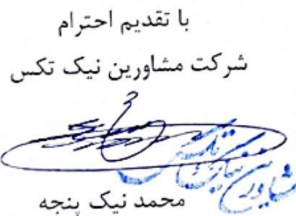 با تقدیم احترام
شرکت مشاورین نیک تکس
محمد نیک پنجه